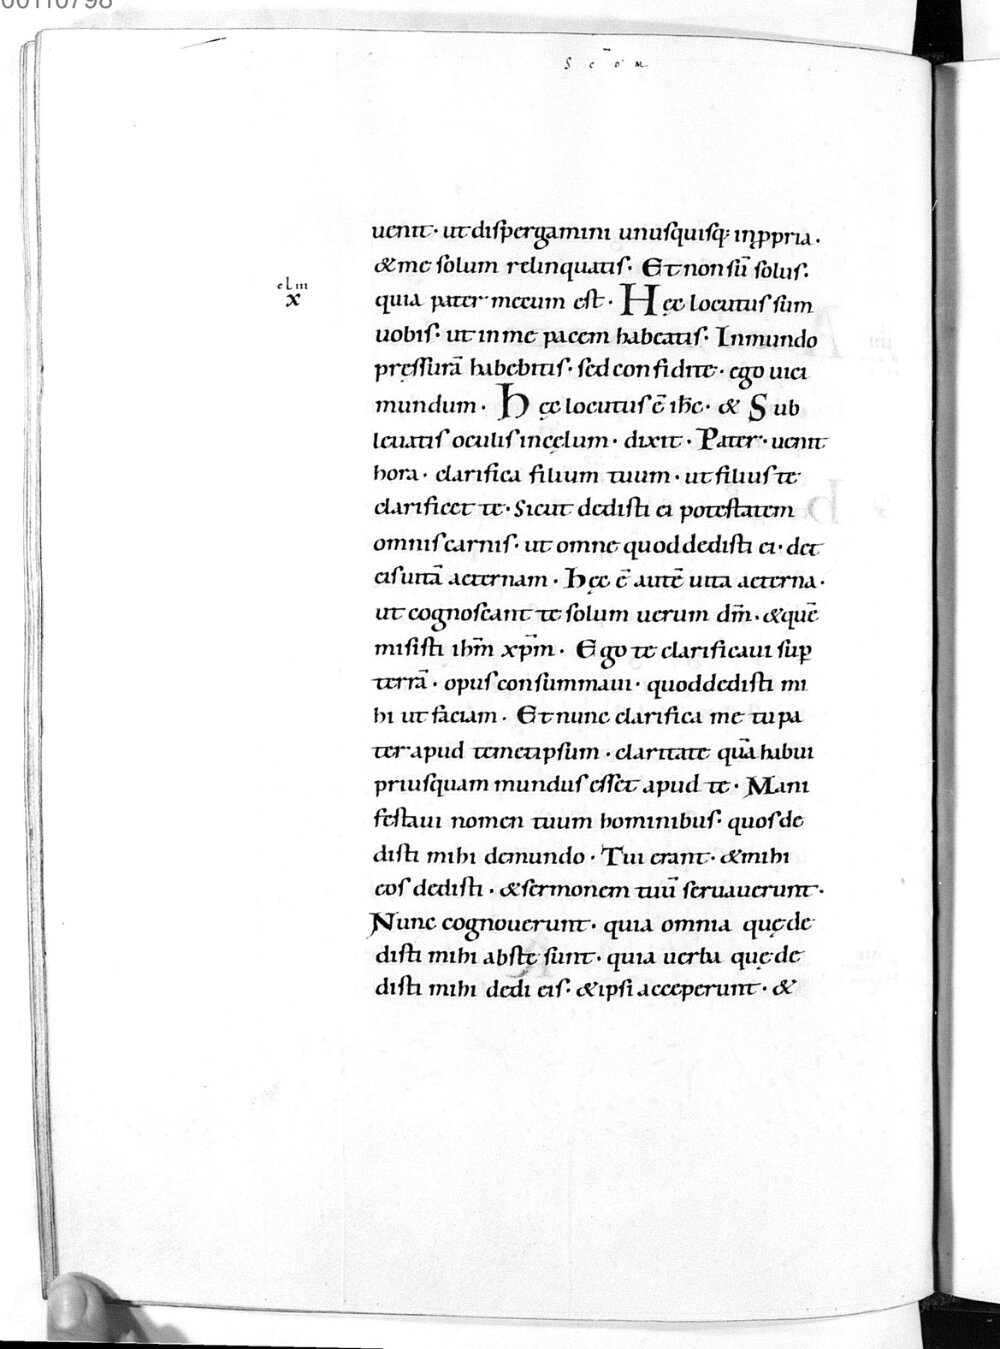 00110798
S c̄ D M
uenit· ut disp̱ergamini unusquisq; inp̱pria.
&me solum relinquatis· Et non sū solus.
clııı
x
quia pater mecum est· Hęc locutus sum
uobis· ut in me pacem habeatis· In mundo
pręssurā habebitis· sed confidite· ego uici
mundum· hęc locutus ē ih̄c· & Sub
leuatis oculis in cęlum· dixit· Pater· uenit
hora· clarifica filium tuum· ut filius te
clarificet te· Sicut dedisti ei potestatem
omnis carnis· ut omne quod dedisti ei· det
eis uitā aeternam· hęc ē autē uita aeterna·
ut cognoscant te solum uerum dm̄· &quē
misisti ihm̄ xpm̄· Ego te clarificaui suꝑ
terrā· opus consummaui· quod dedisti mi
hi ut faciam· Et nunc clarifica me tu pa
ter apud temetipsum· claritate quā habui
priusquam mundus esset apud te· Mani
festaui nomen tuum hominibus· quos de
disti mihi de mundo· Tui erant· &mihi
eos dedisti· &sermonem tuū seruauerunt·
Nunc cognouerunt· quia omnia quę de
disti mihi abs te sunt· quia uerba quę de
disti mihi dedi eis· &ipsi acceperunt· &